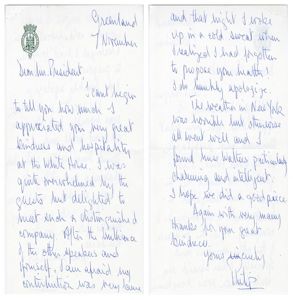 Greenland
7 November
Dear Mr President
I can't begin
to tell you how much I
appreciated your very great
kindness and hospitality
at the White House. I was
quite overwhelmed by the
guests but delighted to
meet such a distinguished
company. After the brilliance
of the other speakers and
yourself, I am afraid my
contribution was very lame
and that night I woke
up in a cold sweat when
I realized I had forgotten
to propose your health!
I do humbly apologize.
The weather in New York
was horrible but otherwise
all went well and I
found Miss Walters particularly
charming and intelligent.
I hope we did a good piece.
Again with very many
thanks for your great
kindness.
Yours sincerely
Philip